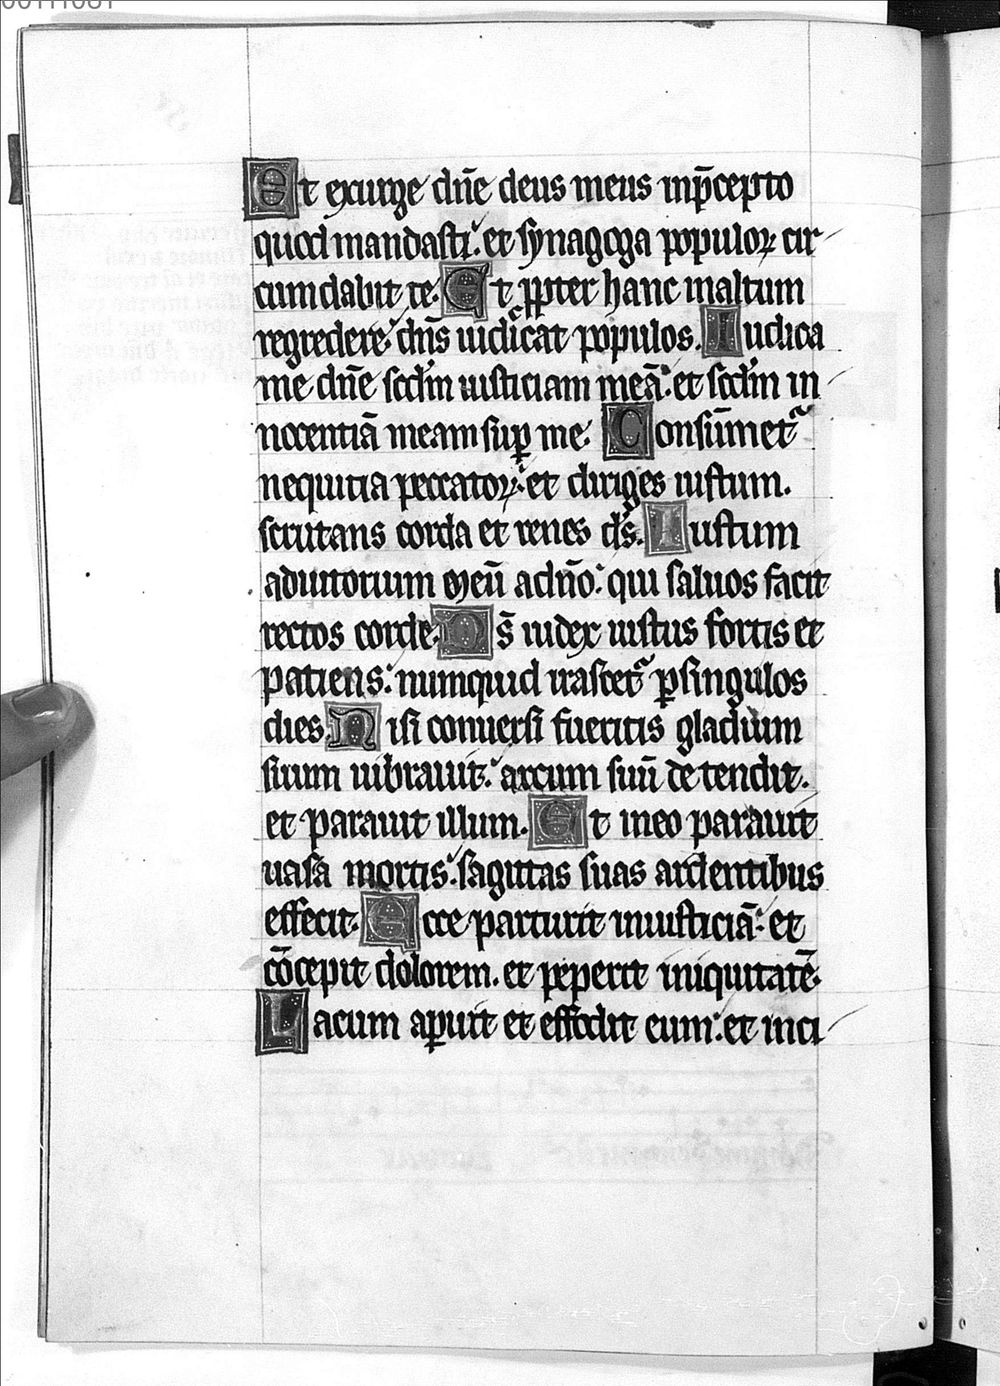 Et exurge dn̄e deus meus inp̄cepto
quod mandasti. et synagoga populoꝝ cir
cumdabit te. Et ꝓpter hanc inaltum
regredere. dn̄s iudicat populos. Iudica
me dn̄e scd̄m iusticiam meā. et scd̄m in
nocentiā meam suꝑ me. Consūmet᷑
nequitia peccatoꝝ. et diriges iustum.
scrutans corda et renes ds̄. Iustum
adiutorium meū adn̄o. qui saluos facit
rectos corde. Ds̄ iudex iustus fortis et
patiens. numquid irascet᷑ ꝑsingulos
dies. Nisi conuersi fueritis gladium
suum uibrauit. arcum suū tetendit.
et parauit illum. Et ineo parauit
uasa mortis. sagittas suas ardentibus
effecit. Ecce parturit iniusticiā. et
cōcepit dolorem. et peperit iniquitatē.
Lacum aꝑuit et effodit eum. et inci